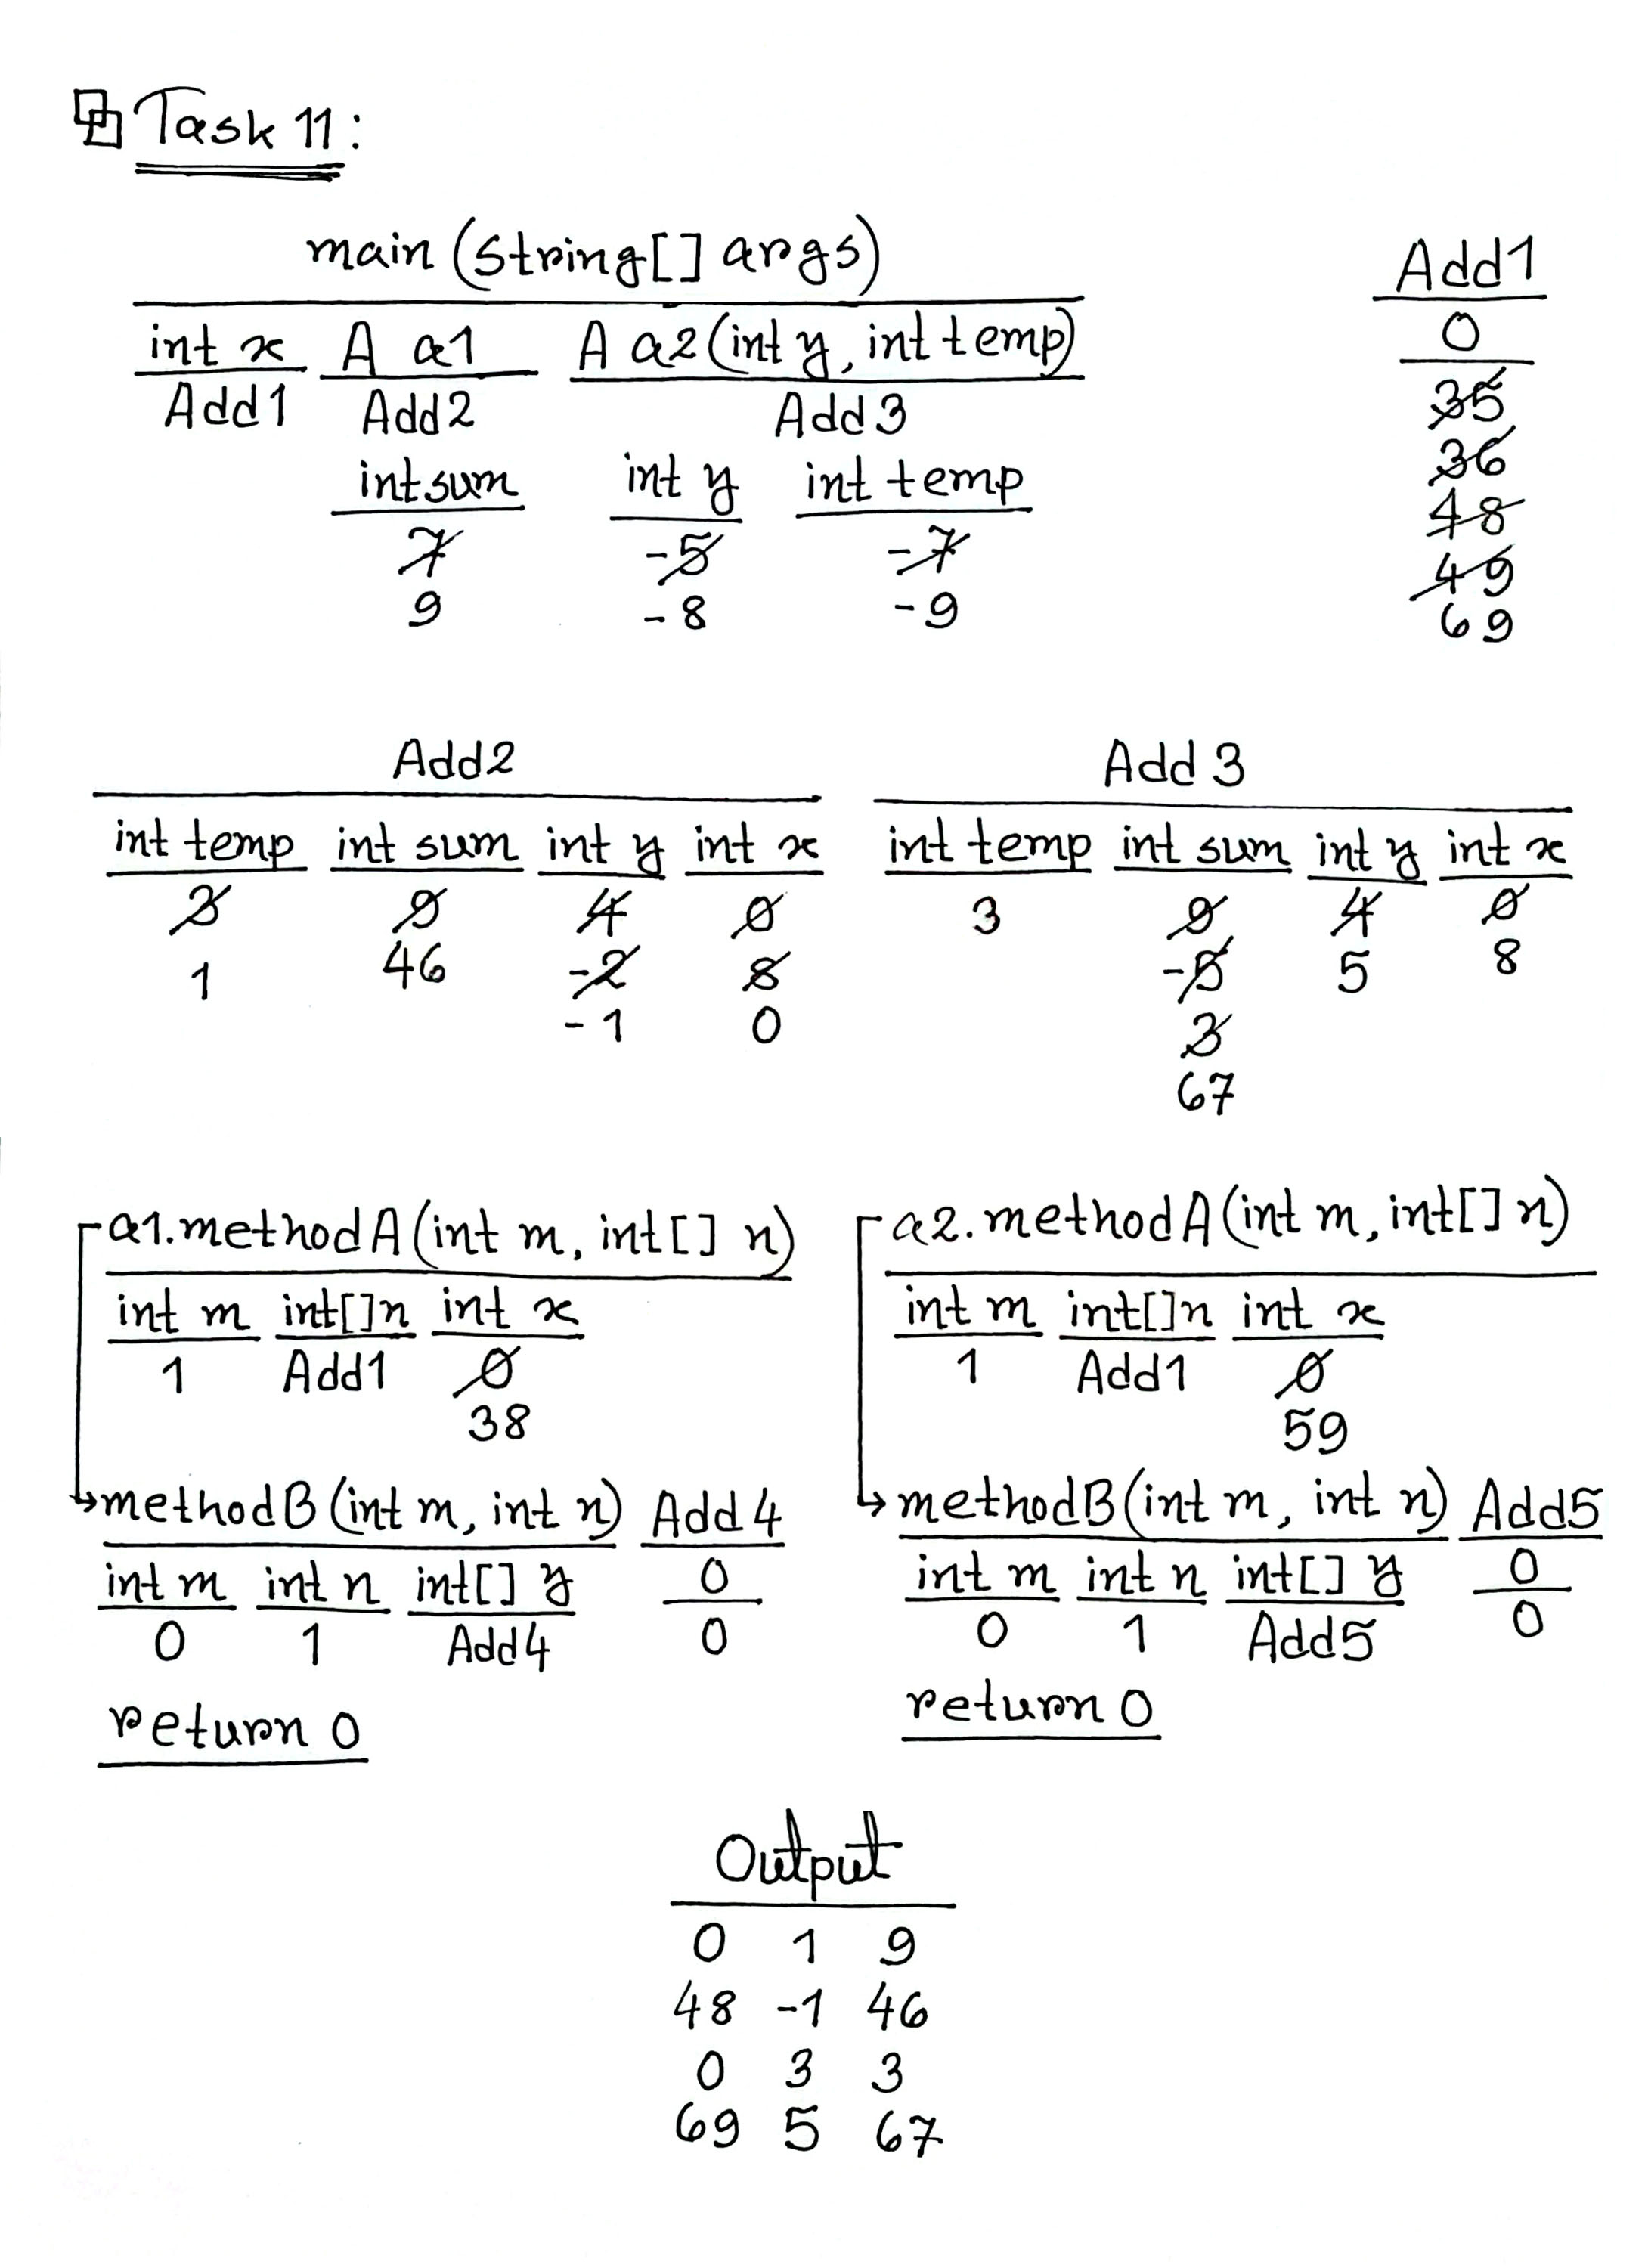 Task 11:
main (String[] args)
Add1
int x A a1 A a2(int y, int temp)
0
Add1 Add2 Add3
35
int sum int y int temp
36
7 -5 -7
48
9 -8 -9
49
69
Add2
int temp int sum int y int x
3 9 4 0
1 46 -2 8
-1 0
Add 3
int temp int sum int y int x
3 9 4 0
-5 5 8
3
67
a1.methodA(int m, int[] n)
int m int[]n int x
1 Add1 0
38
methodB(int m, int n) Add4
int m int n int[] y 0
0 1 Add4 0
return 0
a2.methodA(int m, int[] n)
int m int[]n int x
1 Add1 0
59
methodB(int m, int n) Add5
int m int n int[] y 0
0 1 Add5 0
return 0
Output
0 1 9
48 -1 46
0 3 3
69 5 67